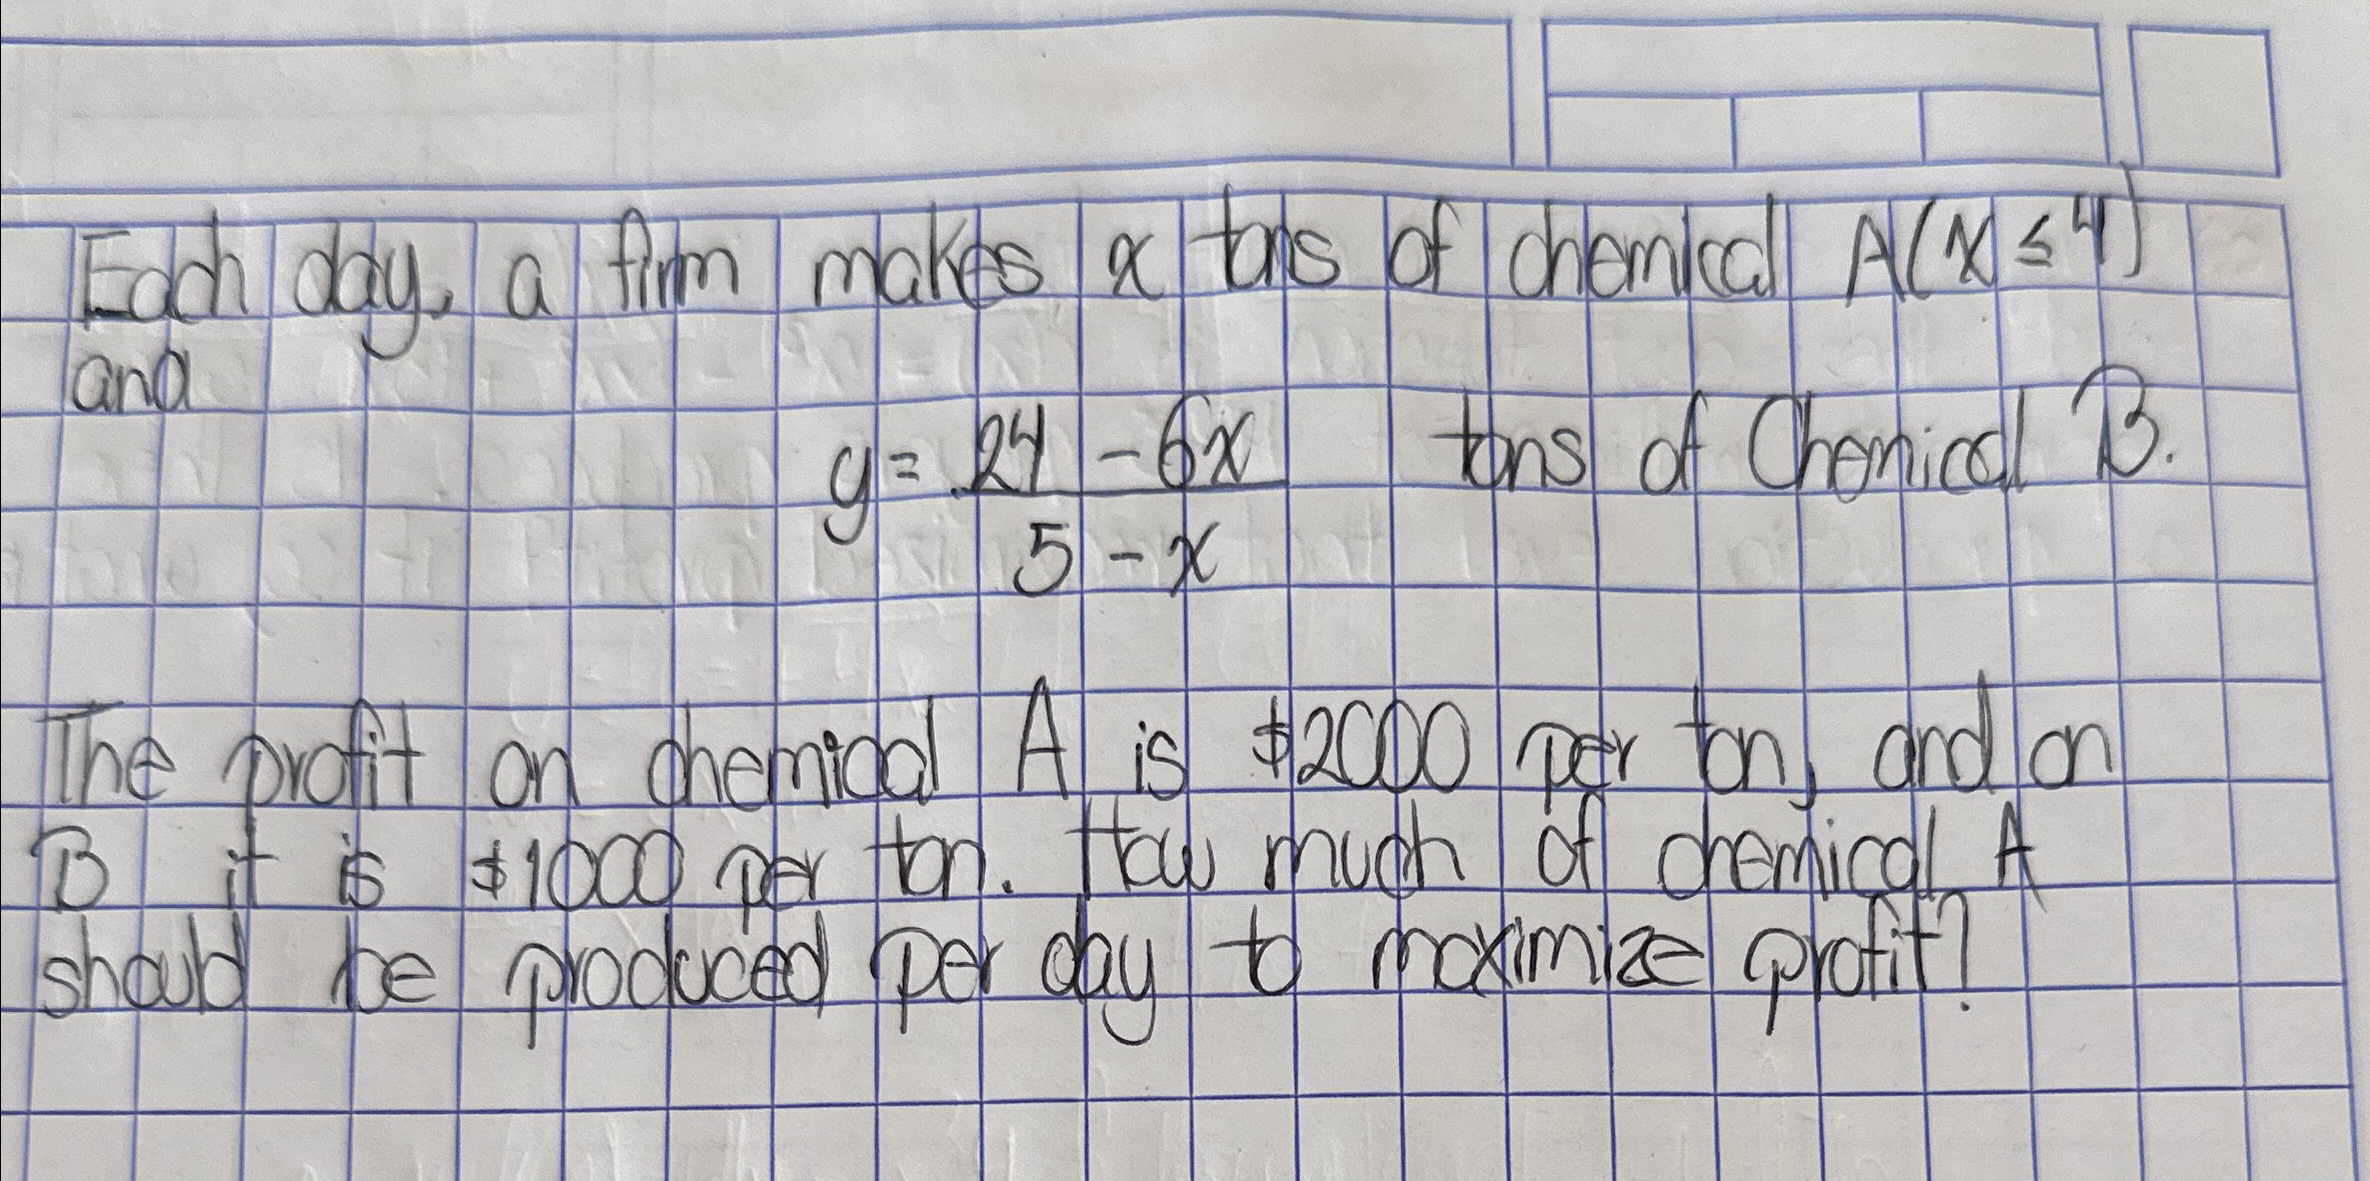 Each day, a firm makes x tons of chemical A(x ≤ 4)
and
y = 24 - 6x / 5 - x tons of Chemical B.
The profit on chemical A is $2000 per ton, and on
B it is $1000 per ton. How much of chemical A
should be produced per day to maximize profit?